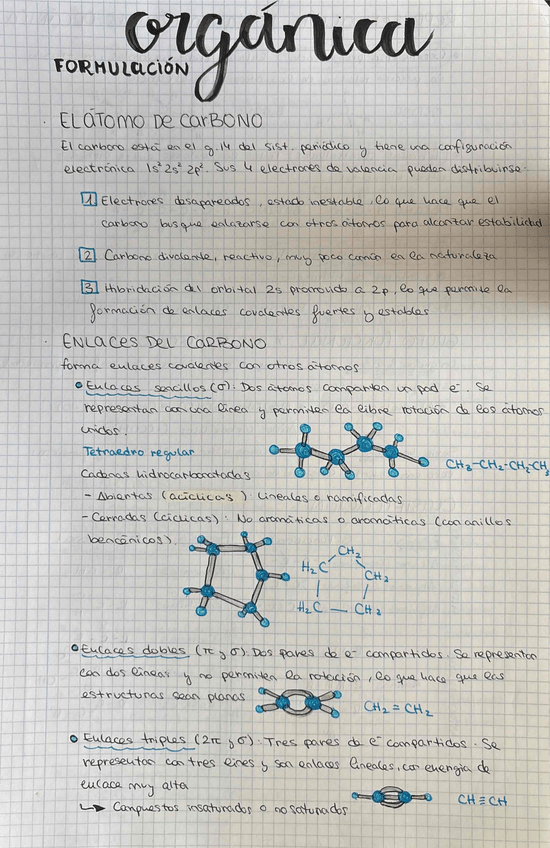 orgánica
FORMULACIÓN
EL ÁTOMO DE CARBONO
El carbono está en el g.14 del sist. periódico y tiene una configuración
electrónica 1s² 2s² 2p². Sus 4 electrones de valencia pueden distribuirse:
1 Electrones desapareados, estado inestable, lo que hace que el
carbono busque enlazarse con otros átomos para alcanzar estabilidad
2 Carbono divalente, reactivo, muy poco común en la naturaleza
3 Hibridación del orbital 2s promovido a 2p, lo que permite la
formación de enlaces covalentes fuertes y estables
ENLACES DEL CARBONO
forma enlaces covalentes con otros átomos
• Enlaces sencillos (σ): Dos átomos comparten un par e⁻. Se
representan con una línea y permiten la libre rotación de los átomos
unidos.
Tetraedro regular
Cadenas hidrocarbonatadas
CH₃-CH₂-CH₂-CH₃
- Abiertas (acíclicas): Lineales o ramificadas
- Cerradas (cíclicas): No aromáticas o aromáticas (con anillos
bencénicos)
CH₂
H₂C
CH₂
H₂C — CH₂
• Enlaces dobles (π y σ): Dos pares de e⁻ compartidos. Se representan
con dos líneas y no permiten la rotación, lo que hace que las
estructuras sean planas
CH₂ = CH₂
• Enlaces triples (2π y σ): Tres pares de e⁻ compartidos. Se
representan con tres lines y son enlaces lineales, con energía de
enlace muy alta
CH ≡ CH
↳ Compuestos insaturados o no saturados